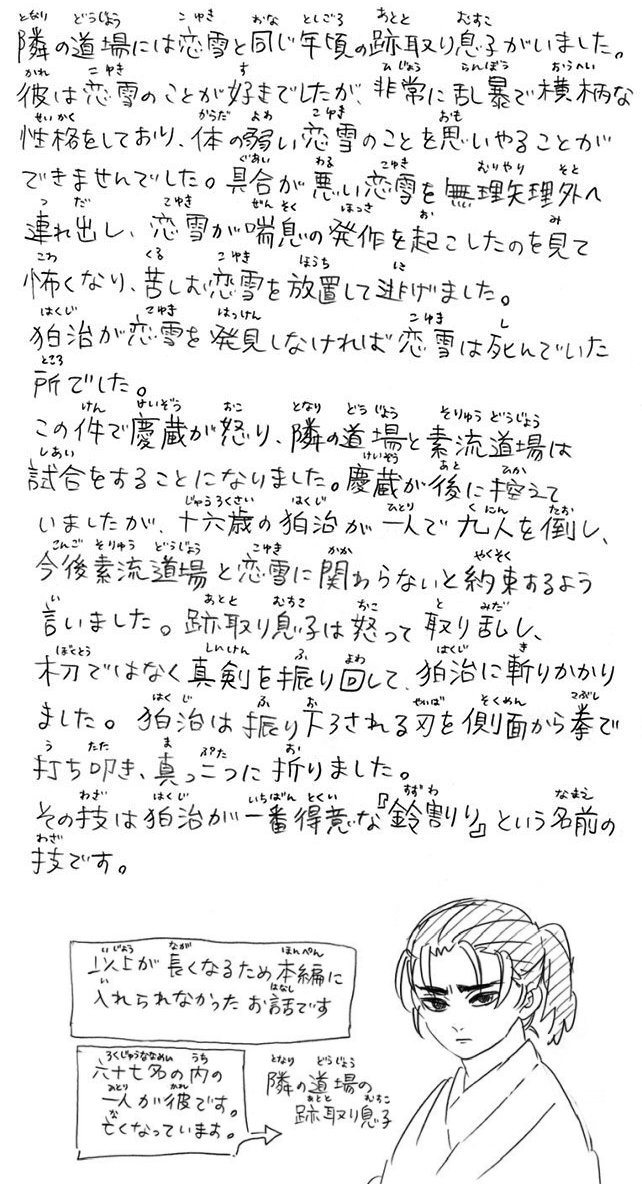 隣の道場には恋雪と同じ年頃の跡取り息子がいました。
彼は恋雪のことが好きでしたが、非常に乱暴で横柄な
性格をしており、体の弱い恋雪のことを思いやることが
できませんでした。具合が悪い恋雪を無理矢理外へ
連れ出し、恋雪が喘息の発作を起こしたのを見て
怖くなり、苦しむ恋雪を放置して逃げました。
狛治が恋雪を発見しなければ恋雪は死んでいた
所でした。
この件で慶蔵が怒り、隣の道場と素流道場は
試合をすることになりました。慶蔵が後に控えて
いましたが、十六歳の狛治が一人で九人を倒し、
今後素流道場と恋雪に関わらないと約束するよう
言いました。跡取り息子は怒って取り乱し、
木刀ではなく真剣を振り回して、狛治に斬りかかり
ました。狛治は振り下ろされる刃を側面から拳で
打ち叩き、真っ二つに折りました。
その技は狛治が一番得意な『鈴割り』という名前の
技です。
以上が長くなるため本編に
入れられなかったお話です
六十七名の内の
一人が彼です。
亡くなっています。
隣の道場の
跡取り息子